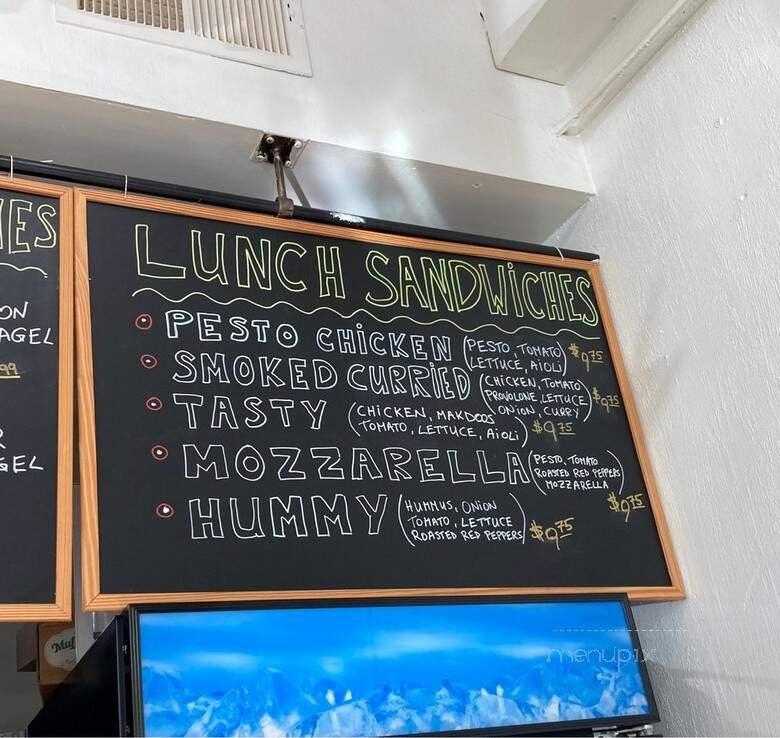 LUNCH SANDWiCHES
PESTO CHiCKEN (PESTO, TOMATO LETTUCE, AiOLI) $9.75
SMOKED CURRiED (CHICKEN, TOMATO PROVOLONE, LETTUCE ONION, CURRY) $9.75
TASTY (CHICKEN, MAKDOOS TOMATO, LETTUCE, AiOLI) $9.75
MOZZARELLA (PESTO, TOMATO ROASTED RED PEPPERS MOZZARELLA) $9.75
HUMMY (HUMMUS, ONION TOMATO, LETTUCE ROASTED RED PEPPERS) $9.75
ON
AGEL
99
GEL
Muf
menupix